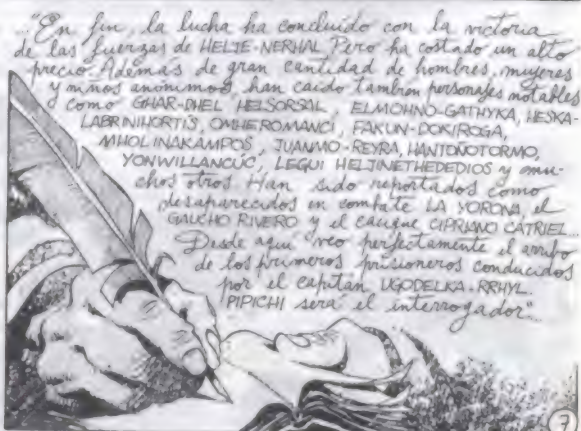 ..."En fin, la lucha ha concluido con la victoria
de las fuerzas de HELJE-NERHAL. Pero ha costado un alto
precio. Además de gran cantidad de hombres, mujeres
y niños anónimos han caído tambien personajes notables
como GHAR-DHEL HELSORSAL, ELMOHNO-GATHYKA, HESKA-
LABRINIHORTIS, OMHEROMANCÍ, FAKUN-DOKIROGA,
MHOLINAKAMPOS, JUANMO-REYRA, HANTOÑOTORMO,
YONWILLANCÚC, LEGUI HELJINETHEDEDIOS y mu-
chos otros. Han sido reportados como
desaparecidos en combate LA YORONA, el
GAUCHO RIVERO y el cacique CIPRIANO CATRIEL...
Desde aquí veo perfectamente el arribo
de los primeros prisioneros conducidos
por el capitán UGODELKA-RRHYL.
PIPICHI será el interrogador"...
7